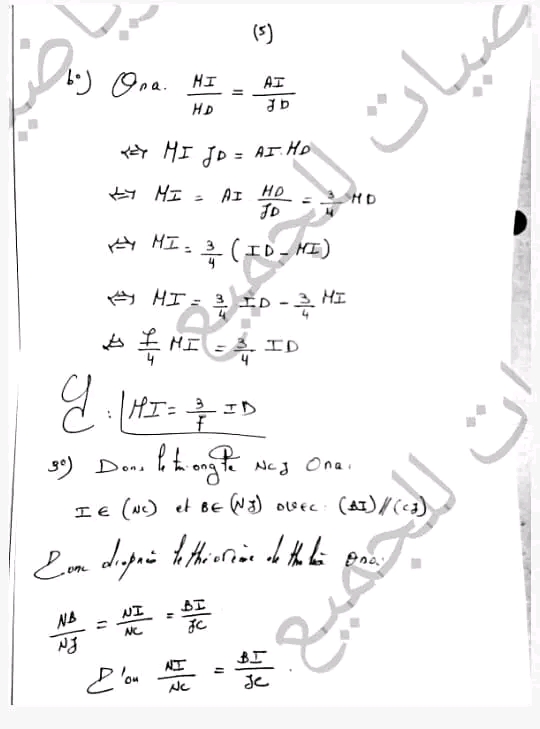 (5)
b°) On a. MI/MD = AI/JD
⇔ MI JD = AI.MD
⇔ MI = AI MD/JD = 3/4 MD
⇔ MI = 3/4 (ID - MI)
⇔ MI = 3/4 ID - 3/4 MI
⇔ 7/4 MI = 3/4 ID
: MI = 3/7 ID
3°) Dans le triangle NCJ On a.
I ∈ (NC) et B ∈ (NJ) avec (BI) // (CJ)
Donc d'après le théorème de thalès On a:
NB/NJ = NI/NC = BI/JC
D'où NI/NC = BI/JC .
رياضيات للجميع
رياضيات للجميع